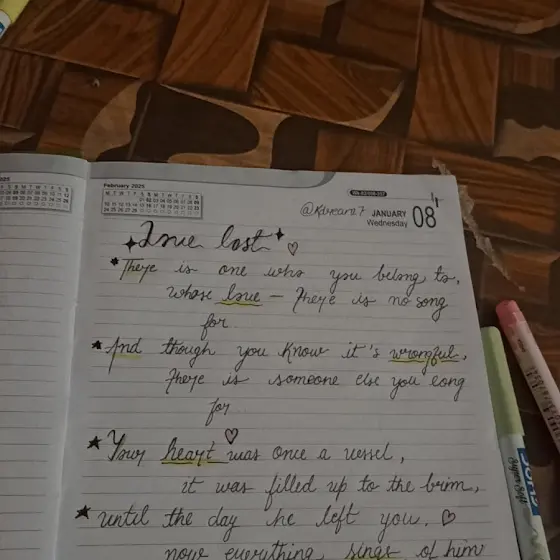 February 2025
@Kdream.7
JANUARY 08
Wednesday
Love lost
There is one who you belong to,
whose love – There is no song
for.
And though you know it's wrongful,
There is someone else you long
for.
Your heart was once a vessel,
it was filled up to the brim,
until the day he left you.
now everything sings of him